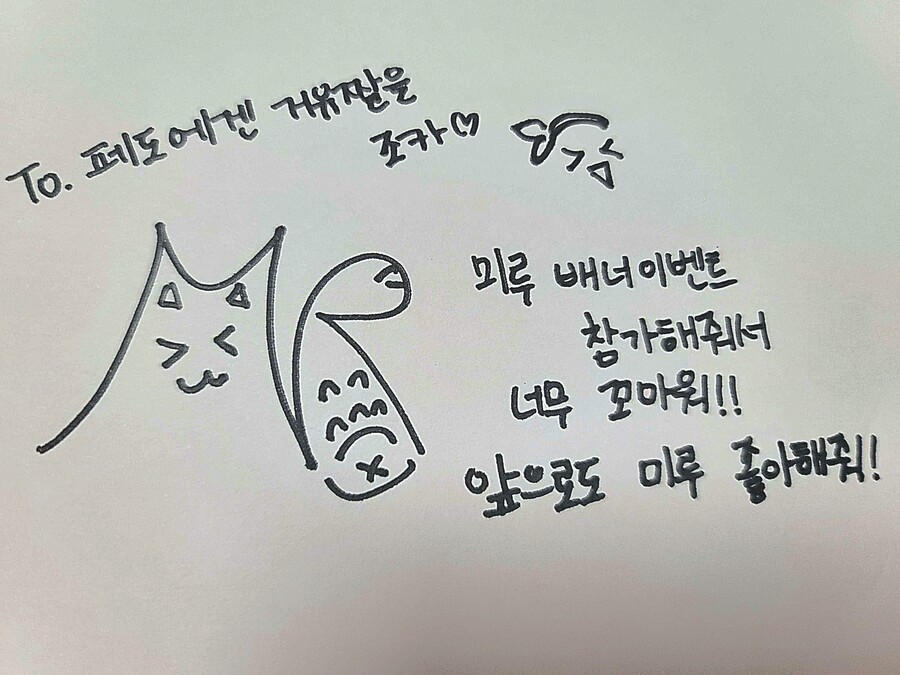 To. 페도에겐 거유짤을
조카♡
미루 배너이벤트
참가해줘서
너무 꼬마워!!
앞으로도 미루 좋아해줘!